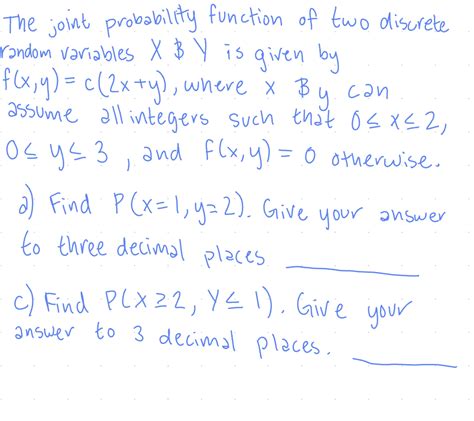 The joint probability function of two discrete
random variables X & Y is given by
f(x,y) = c(2x+y), where x & y can
assume all integers such that 0 ≤ x ≤ 2,
0 ≤ y ≤ 3, and f(x,y) = 0 otherwise.
a) Find P(X=1, y=2). Give your answer
to three decimal places ________
c) Find P(X ≥ 2, Y ≤ 1). Give your
answer to 3 decimal places. ________